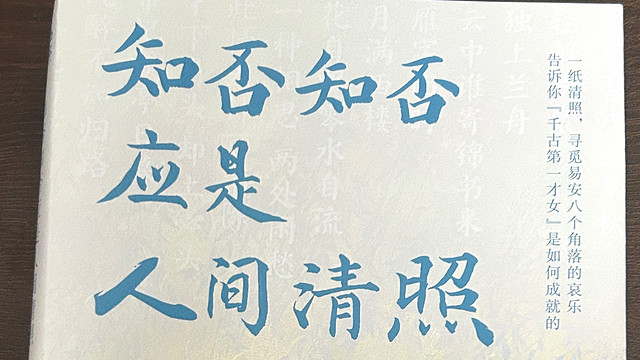 知否知否
应是
人间清照
一纸清照，寻觅易安八个角落的哀乐
告诉你『千古第一才女』是如何成就的
独上兰舟
云中谁寄锦书来
雁字
月满西楼
花自 水自流
一种 思 两处闲愁